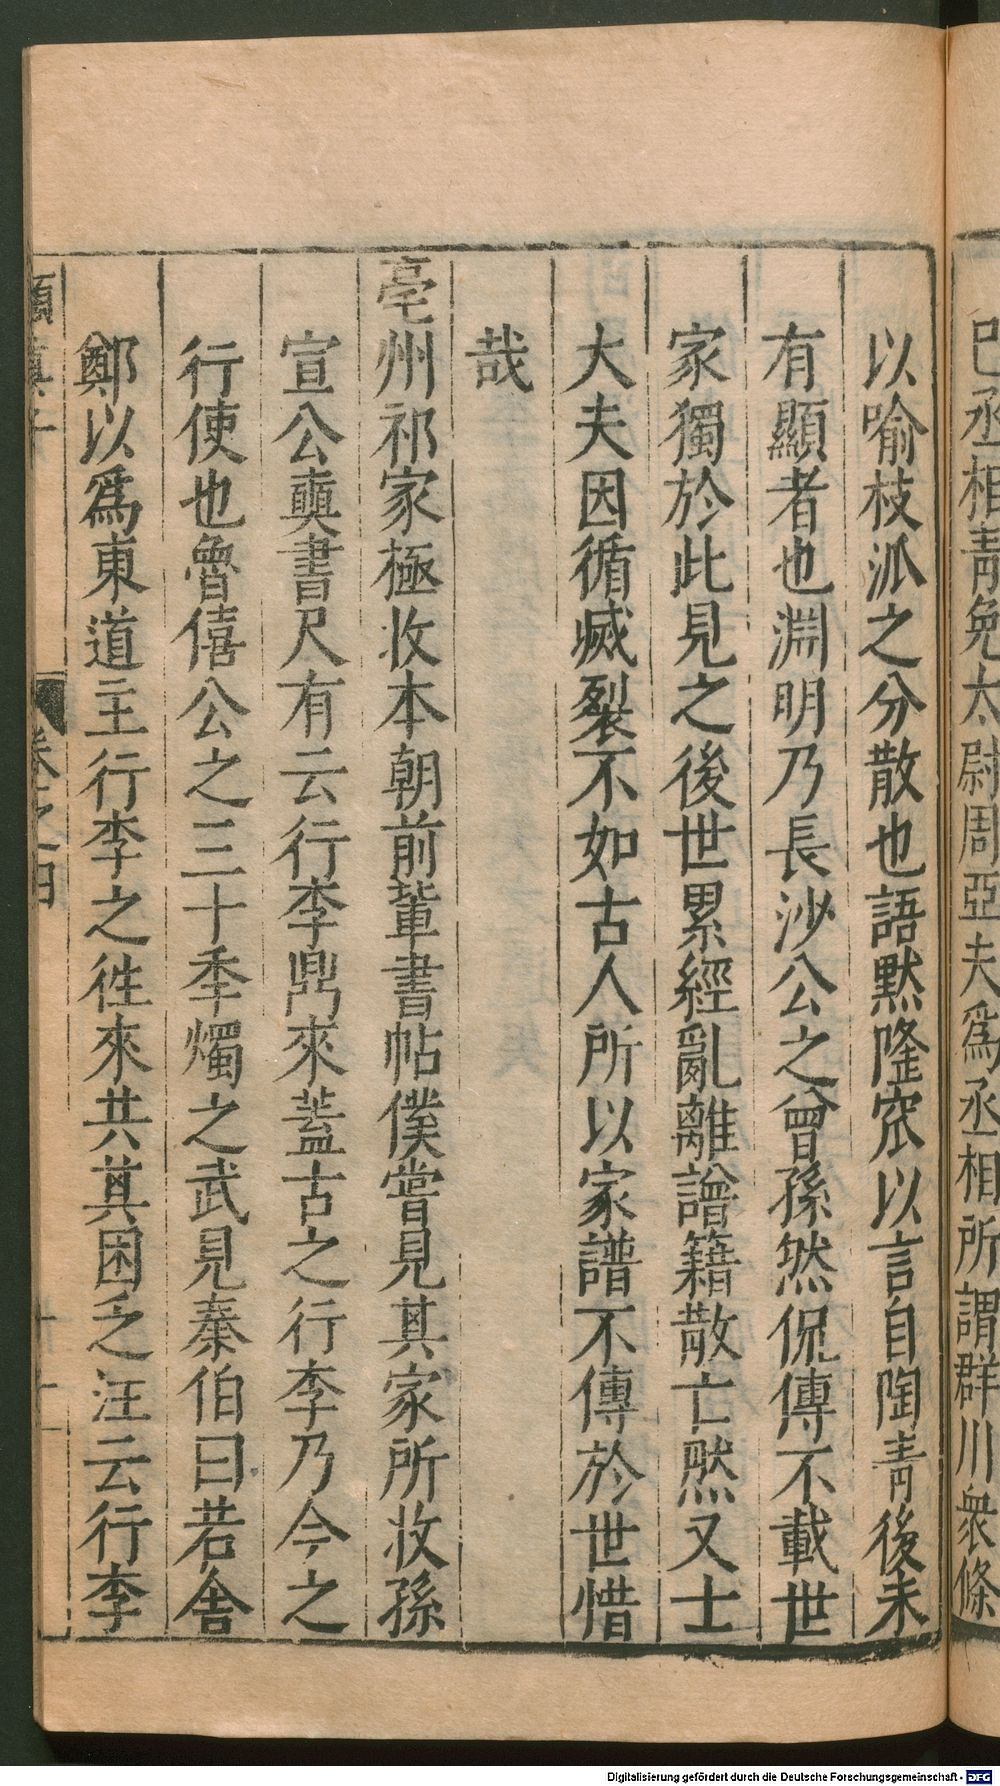 巳丞相青免太尉周亞夫爲丞相所謂群川衆條
以喻枝派之分散也語黙隆窊以言自陶青後未
有顯者也淵明乃長沙公之曾孫然侃傳不載世
家獨於此見之後世累經亂離譜籍散亡然又士
大夫因循滅裂不如古人所以家譜不傳於世惜
哉
亳州祁家極收本朝前輩書帖僕嘗見其家所收孫
宣公奭書尺有云行李鼎來蓋古之行李乃今之
行使也魯僖公之三十季燭之武見秦伯曰若舍
鄭以爲東道主行李之徃來共其困乏注云行李
嬾真子
卷之四
十一
Digitalisierung gefördert durch die Deutsche Forschungsgemeinschaft - DFG